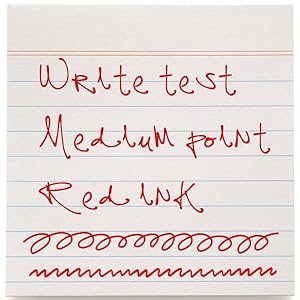 Write test
Medium point
Red ink